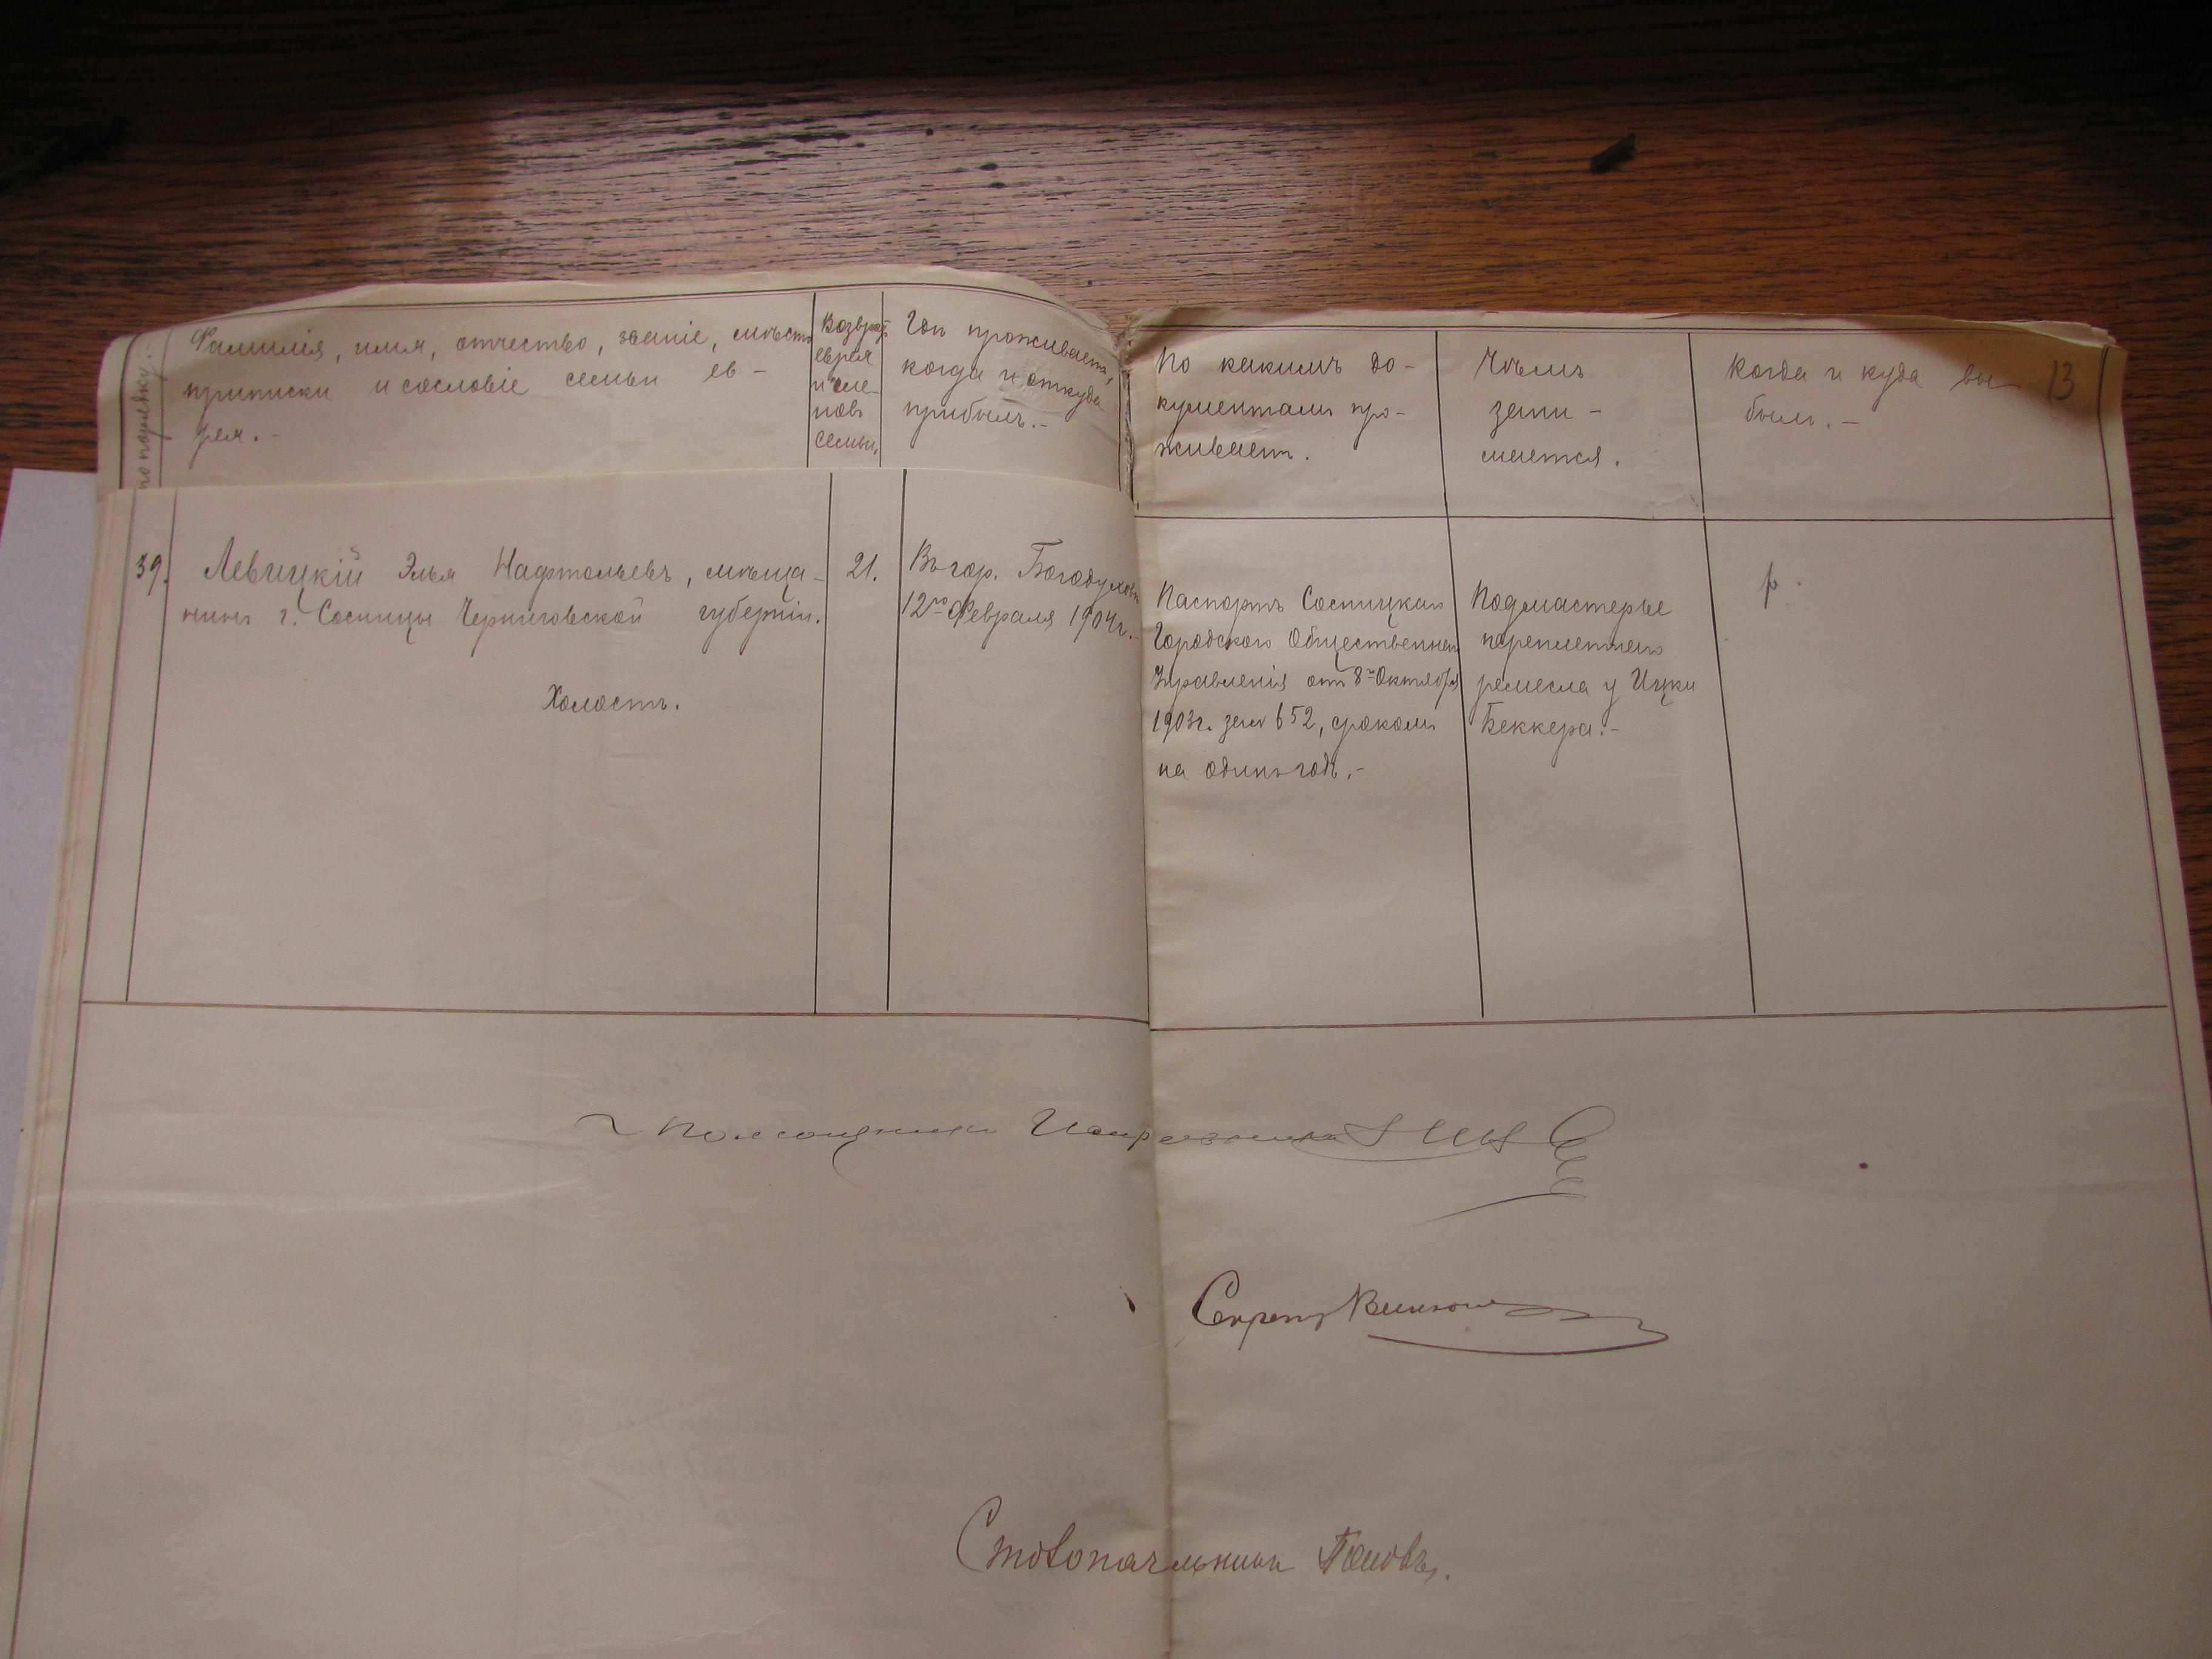 по порядку.
Фамилія, имя, отчество, званіе, мѣсто
приписки и сословіе семьи ев-
рея.-
Возрастъ
еврея
и чле-
новъ
семьи.
Гдѣ проживаетъ,
когда и откуда
прибылъ.-
По какимъ до-
кументамъ про-
живаетъ.
Чѣмъ
зани-
мается.
Когда и куда вы-
былъ.-
13
39.
Левицкій Элья Нафтольевъ, мѣща-
нинъ г. Сосницы Черниговской губерніи.
Холостъ.
21.
Въ гор. Богодуховѣ
12го Февраля 1904г.-
Паспортъ Сосницкаго
Городского Общественнаго
Управленія отъ 8го Октября
1903г. за № 652, срокомъ
на одинъ годъ.-
Подмастерье
переплетнаго
ремесла у Ицки
Беккера.-
Помощникъ Исправника
Секрет
Столоначальникъ Поповъ.